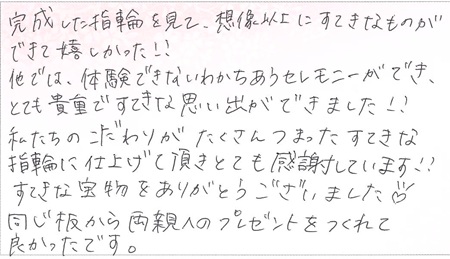 完成した指輪を見て、想像以上にすてきなものが
できて嬉しかった!!
他では、体験できないわかちあうセレモニーができ、
とても貴重ですてきな思い出ができました!!
私たちのこだわりがたくさんつまったすてきな
指輪に仕上げて頂きとても感謝しています!!
すてきな宝物をありがとうございました♡
同じ板から両親へのプレゼントをつくれて
良かったです。